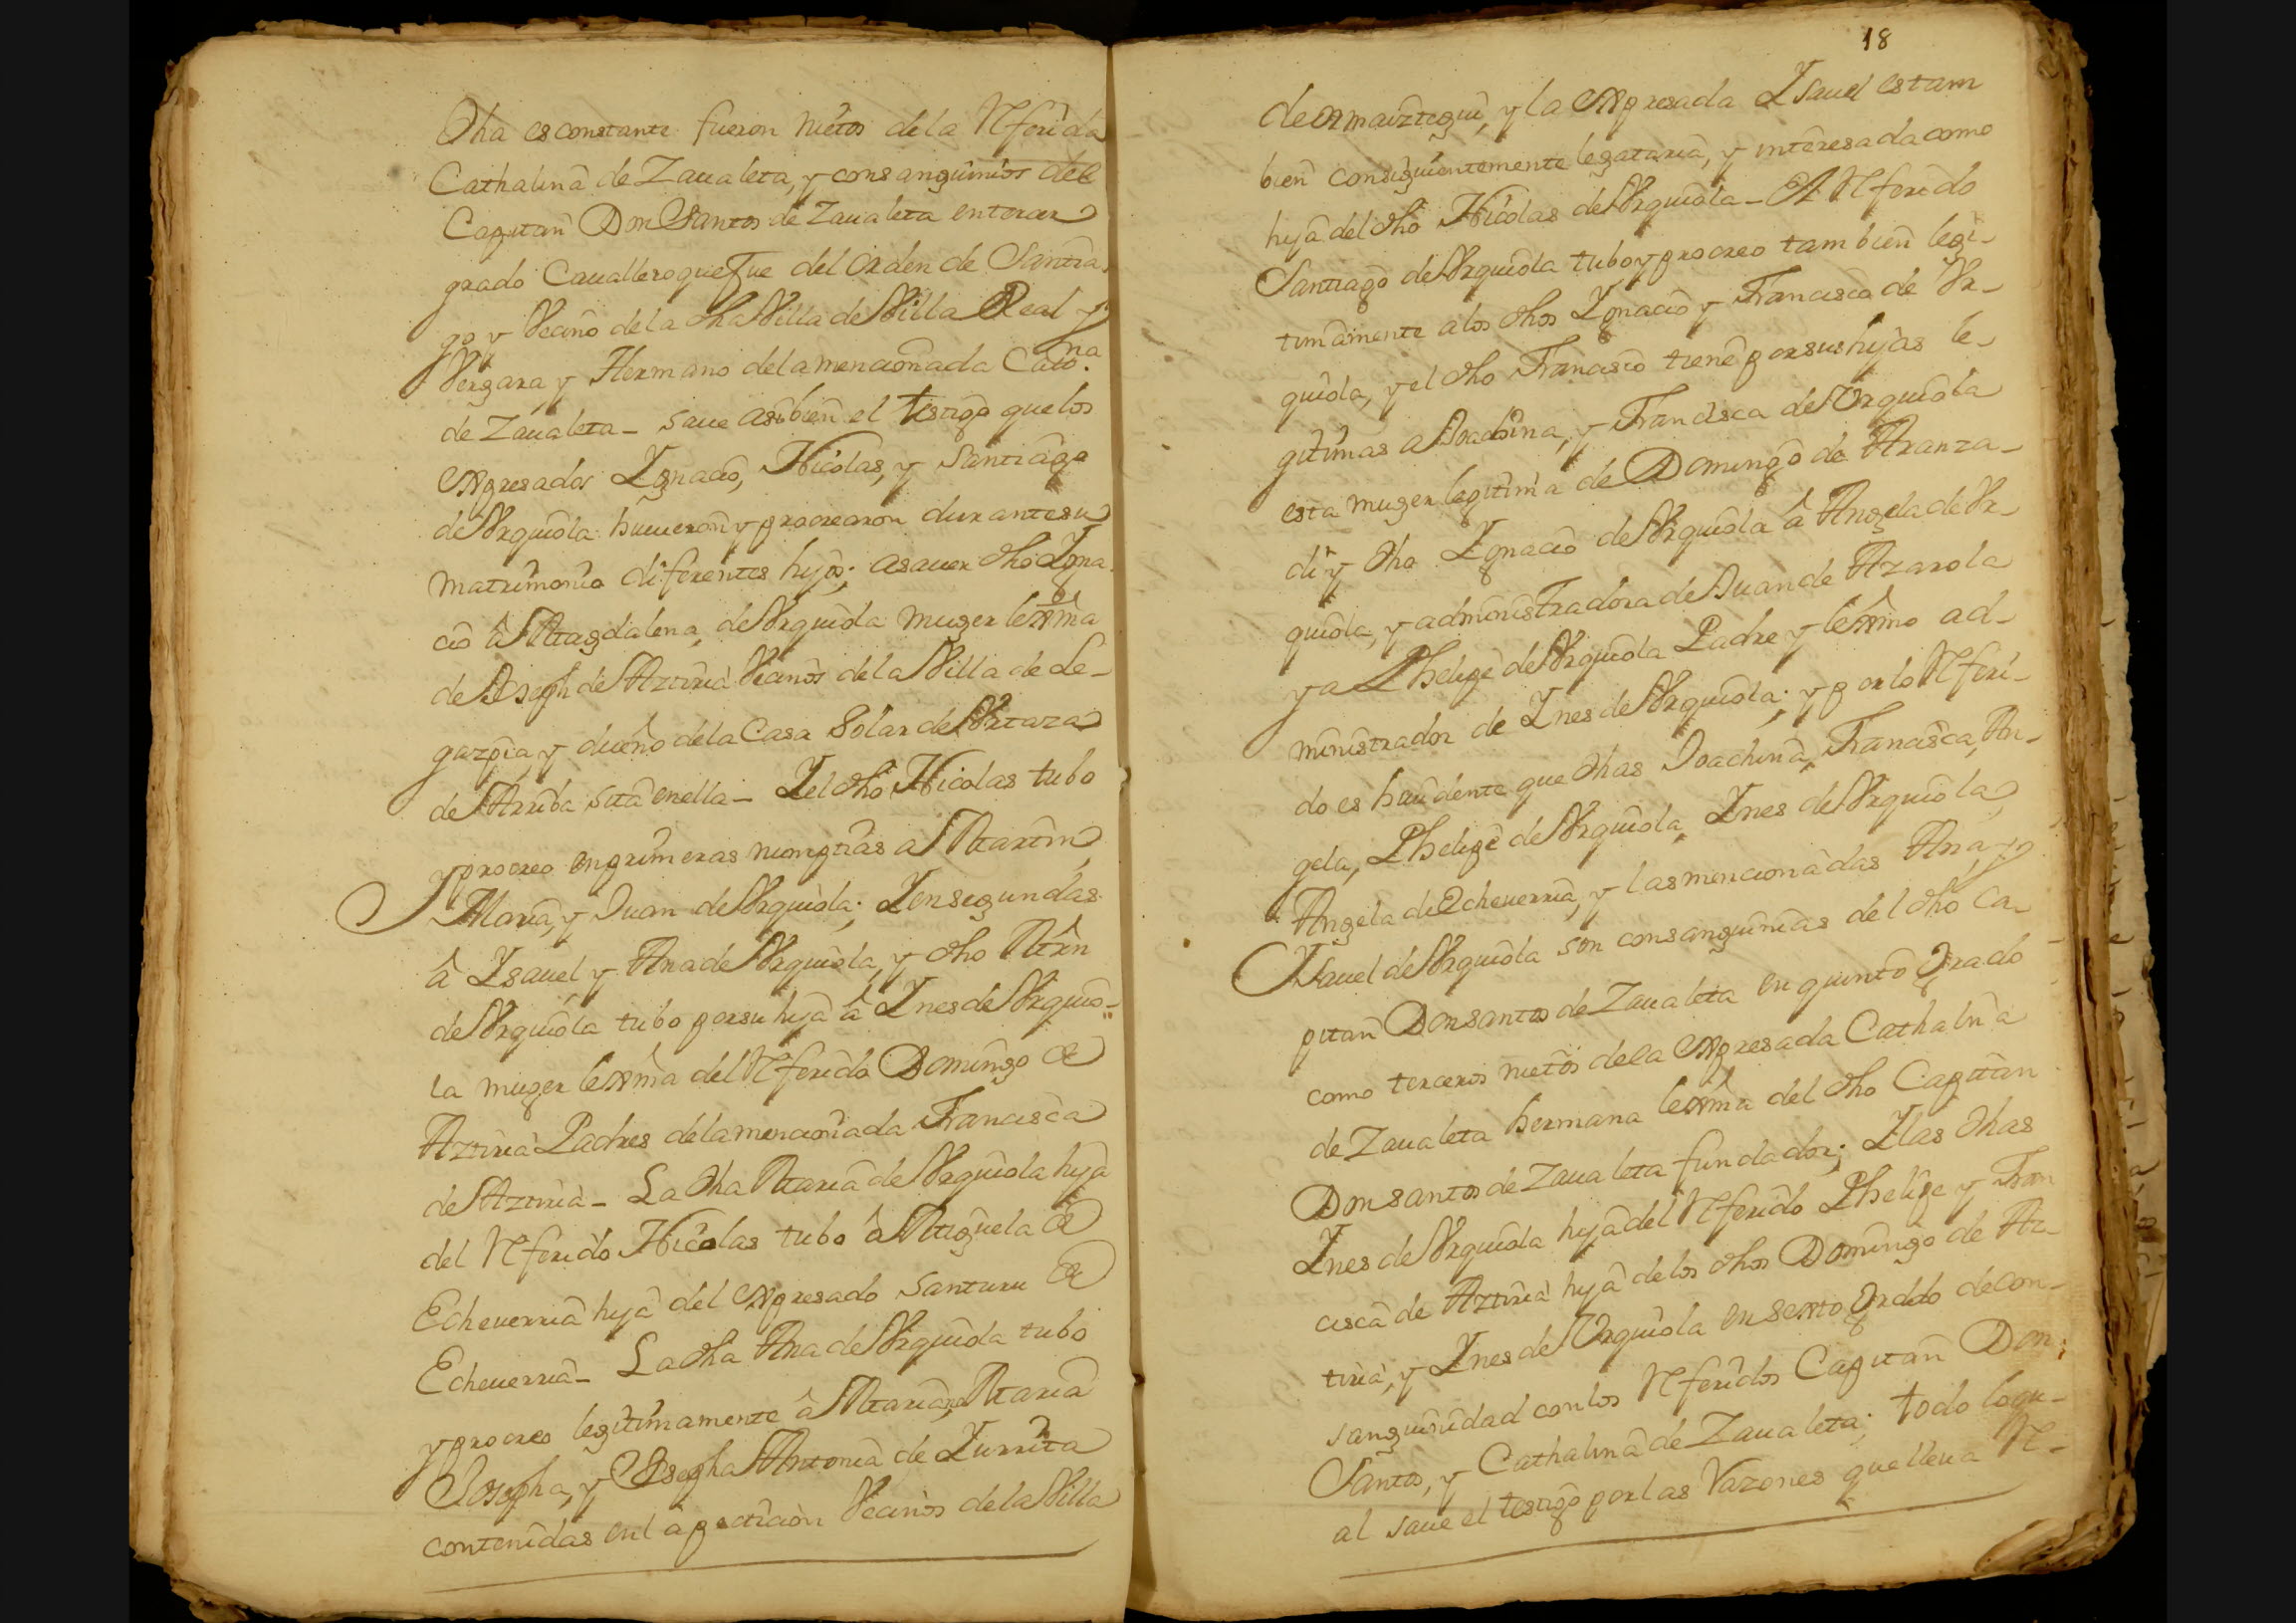 Dha es constante fueron nietos de la Referida
Cathalina de Zaualeta, y consanguinios del
Capitan Don Santos de Zaualeta en tercer
grado Cauallero que fue del Orden de Santia
go y Vecino de la dha Villa de Villa Real y
Vergara y Hermano de la mencionada Catha.na
de Zaualeta - saue asibien el testigo que los
expresados Ygnacio, Nicolas, y Santiago
de Vrquiola huuieron y procrearon durante su
matrimonio diferentes hijos; asauer dho Ygna
cio â Magdalena de Vrquiola muger lexma
de Joseph de Aztiria Vecinos de la Villa de Le-
gazpia y dueño de la Casa Solar de Vrtaza
de Arriba sita en ella - Y el dho Nicolas tubo
y procreo en primeras nunptias a Martin
Maria, y Juan de Vrquiola; Y en segundas
â Ysauel y Ana de Vrquiola, y dho Mrn
de Vrquiola tubo por su hija â Ynes de Vrquio-
la muger lexma del Referido Domingo de
Aztiria Padres de la mencionada Francisca
de Aztiria - La dha Maria de Vrquiola hija
del Referido Nicolas tubo â Miguela de
Echeuerria hija del expresado Santuru de
Echeuerria - La dha Ana de Vrquiola tubo
y procreo legitimamente â Mariana, Maria
Josepha, y Josepha Antonia de Yurrita
contenidas en la peticion Vecinos de la Villa
18
de Ormaiztegui, y la expresada Ysauel es tam
bien consiguientemente legataria, y interesada como
hija del dho Nicolas de Vrquiola - El Referido
Santiago de Vrquiola tubo y procreo tambien legi-
timamente a los dhos Ygnacio y Francisco de Vr-
quiola, y el dho Francisco tiene por sus hijas le-
gitimas a Joachina, y Francisca de Vrquiola
esta muger legitima de Domingo de Aranza-
di y dho Ygnacio de Vrquiola â Angela de Vr-
quiola, y administradora de Juan de Azarola
y a Phelipe de Vrquiola Padre y lexmo ad-
ministrador de Ynes de Vrquiola; y por lo Referi-
do es huidente que dhas Joachina, Francisca, An-
gela, Phelipe de Vrquiola, Ynes de Vrquiola,
Angela de Echeuerria, y las mencionadas Ana, y
Ysauel de Vrquiola son consanguinias del dho Ca-
pitan Don Santos de Zaualeta en quinto Grado
como terceros nietos de la expresada Cathalina
de Zaualeta hermana lexma del dho Capitan
Don Santos de Zaualeta fundador; Y las dhas
Ynes de Vrquiola hija del Referido Phelipe y Fran
cisca de Aztiria hija de los dhos Domingo de Az-
tiria, y Ynes de Vrquiola en sexto Grado de con-
sanguinidad con los Referidos Capitan Don
Santos, y Cathalina de Zaualeta; todo loqu-
al saue el testigo por las Razones que lleua Re-